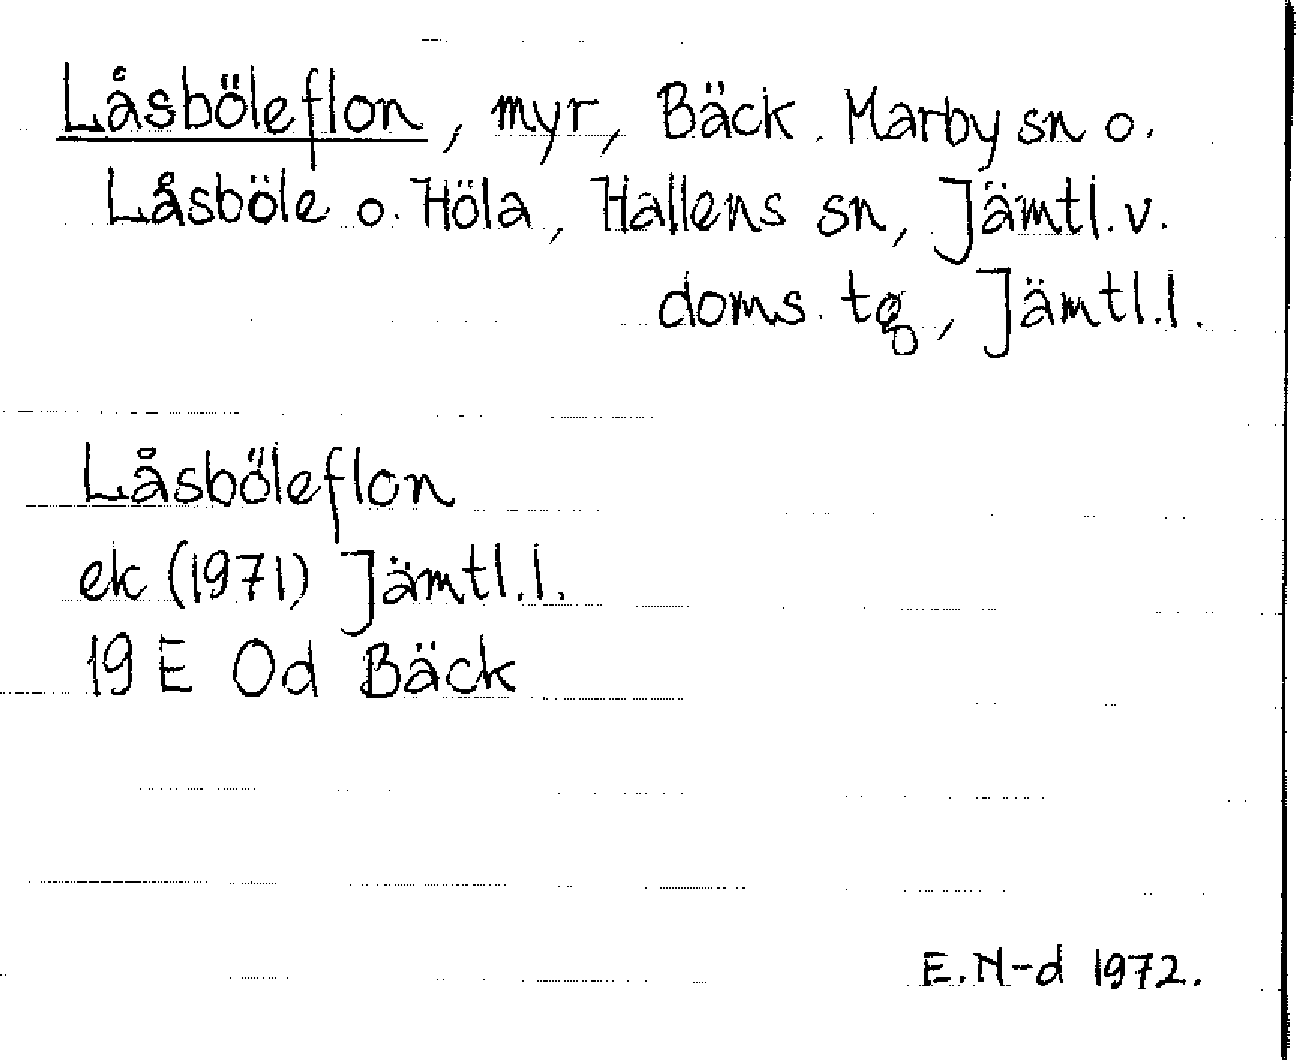 Låsböleflon, myr, Bäck. Marby sn o.
Låsböle o. Höla, Hallens sn, Jämtl. v.
doms. tg, Jämtl. l.
Låsböleflon
ek (1971) Jämtl. l.
19 E Od Bäck
E. N-d 1972.